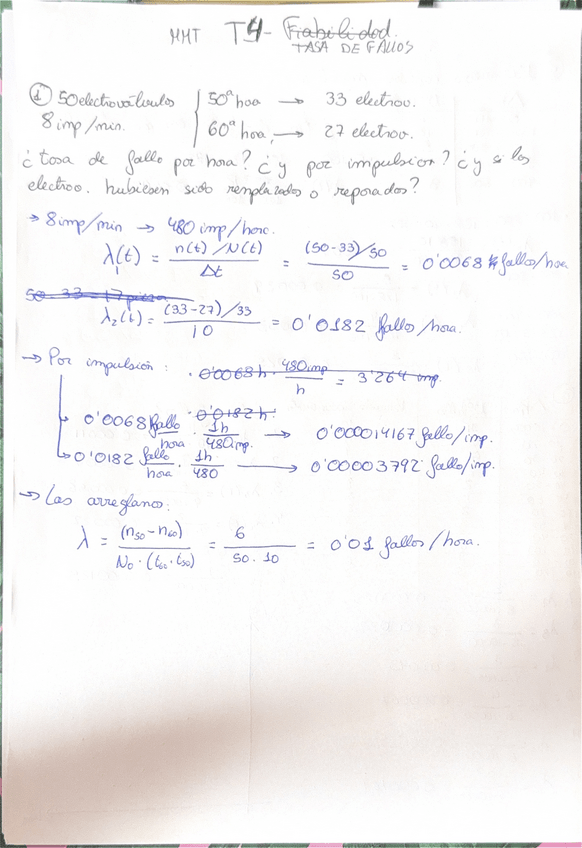 MMT T4- Fiabilidad.
TASA DE FALLOS
① 50 electroválvulas 50ª hora → 33 electrov.
8 imp/min. 60ª hora → 27 electrov.
¿tasa de fallo por hora? ¿y por impulsion? ¿y si las
electrov. hubiesen sido remplazados o reparados?
→ 8 imp/min → 480 imp/hora.
λ₁(t) = n(t)/N(t) / Δt = (50-33)/50 / 50 = 0'0068 fallos/hora
50-33 = 17 piezas
λ₂(t) = (33-27)/33 / 10 = 0'0182 fallos/hora.
→ Por impulsión: · 0'0068 h · 480 imp / h = 3'264 imp.
· 0'0182 h ·
0'0068 fallo/hora · 1h/480 imp. → 0'000014167 fallo/imp.
0'0182 fallo/hora · 1h/480 → 0'00003792 fallo/imp.
→ Las arreglamos:
λ = (n50 - n60) / N0 · (t60 · t50) = 6 / 50 · 10 = 0'01 fallos/hora.